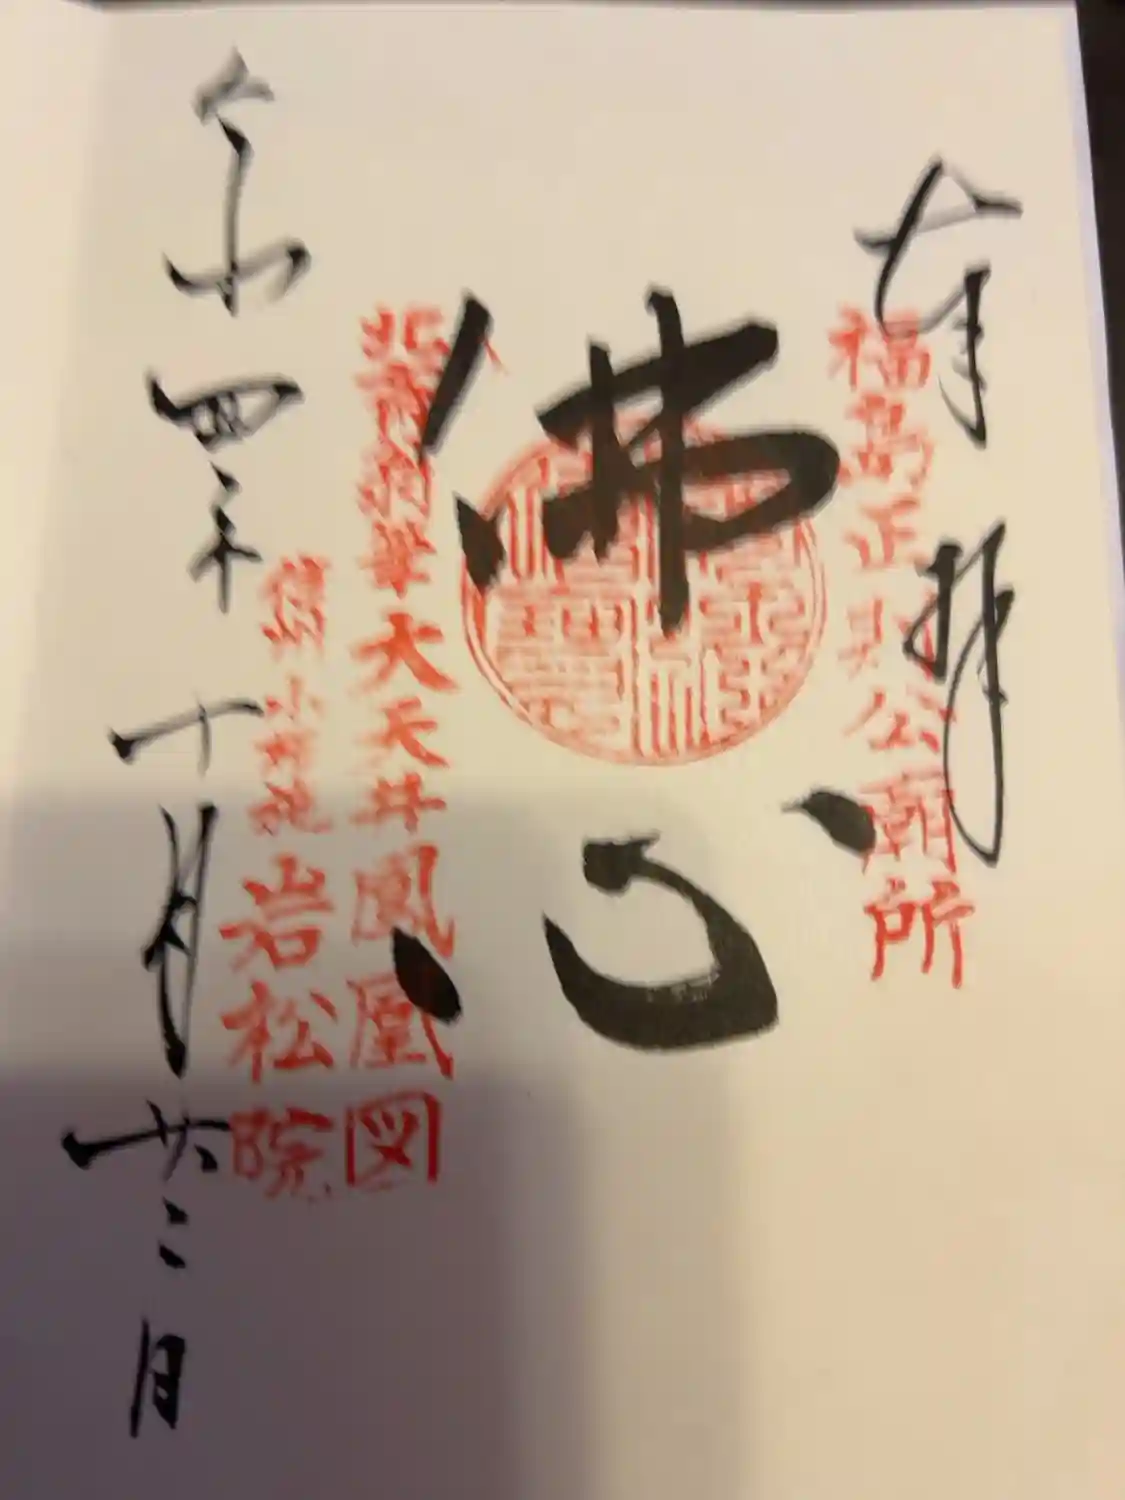 奉拝
福島正則公廟所
佛心
北斎翁筆大天井鳳凰図
信州小布施岩松院
令和四年十月廿二日